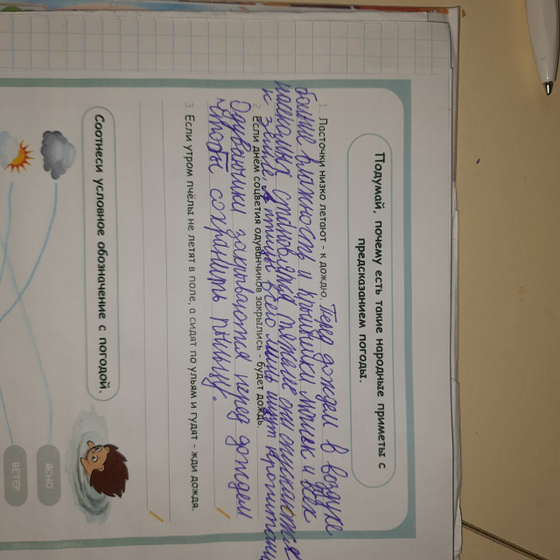 Подумай, почему есть такие народные приметы с
предсказанием погоды.
1. Ласточки низко летают - к дождю. Перед дождем в воздухе
больше влажности и крылышки мошек и
насекомых становятся тяжелые они опускаются
к земле. А птицы всего лишь ищут пропитание
2. Если днем соцветия одуванчиков закрылись - будет дождь.
Одуванчики закрываются перед дождем
чтобы сохранить пыльцу.
3. Если утром пчёлы не летят в поле, а сидят по ульям и гудят - жди дождя.
Соотнеси условное обозначение с погодой.
ЯСНО
ВЕТЕР